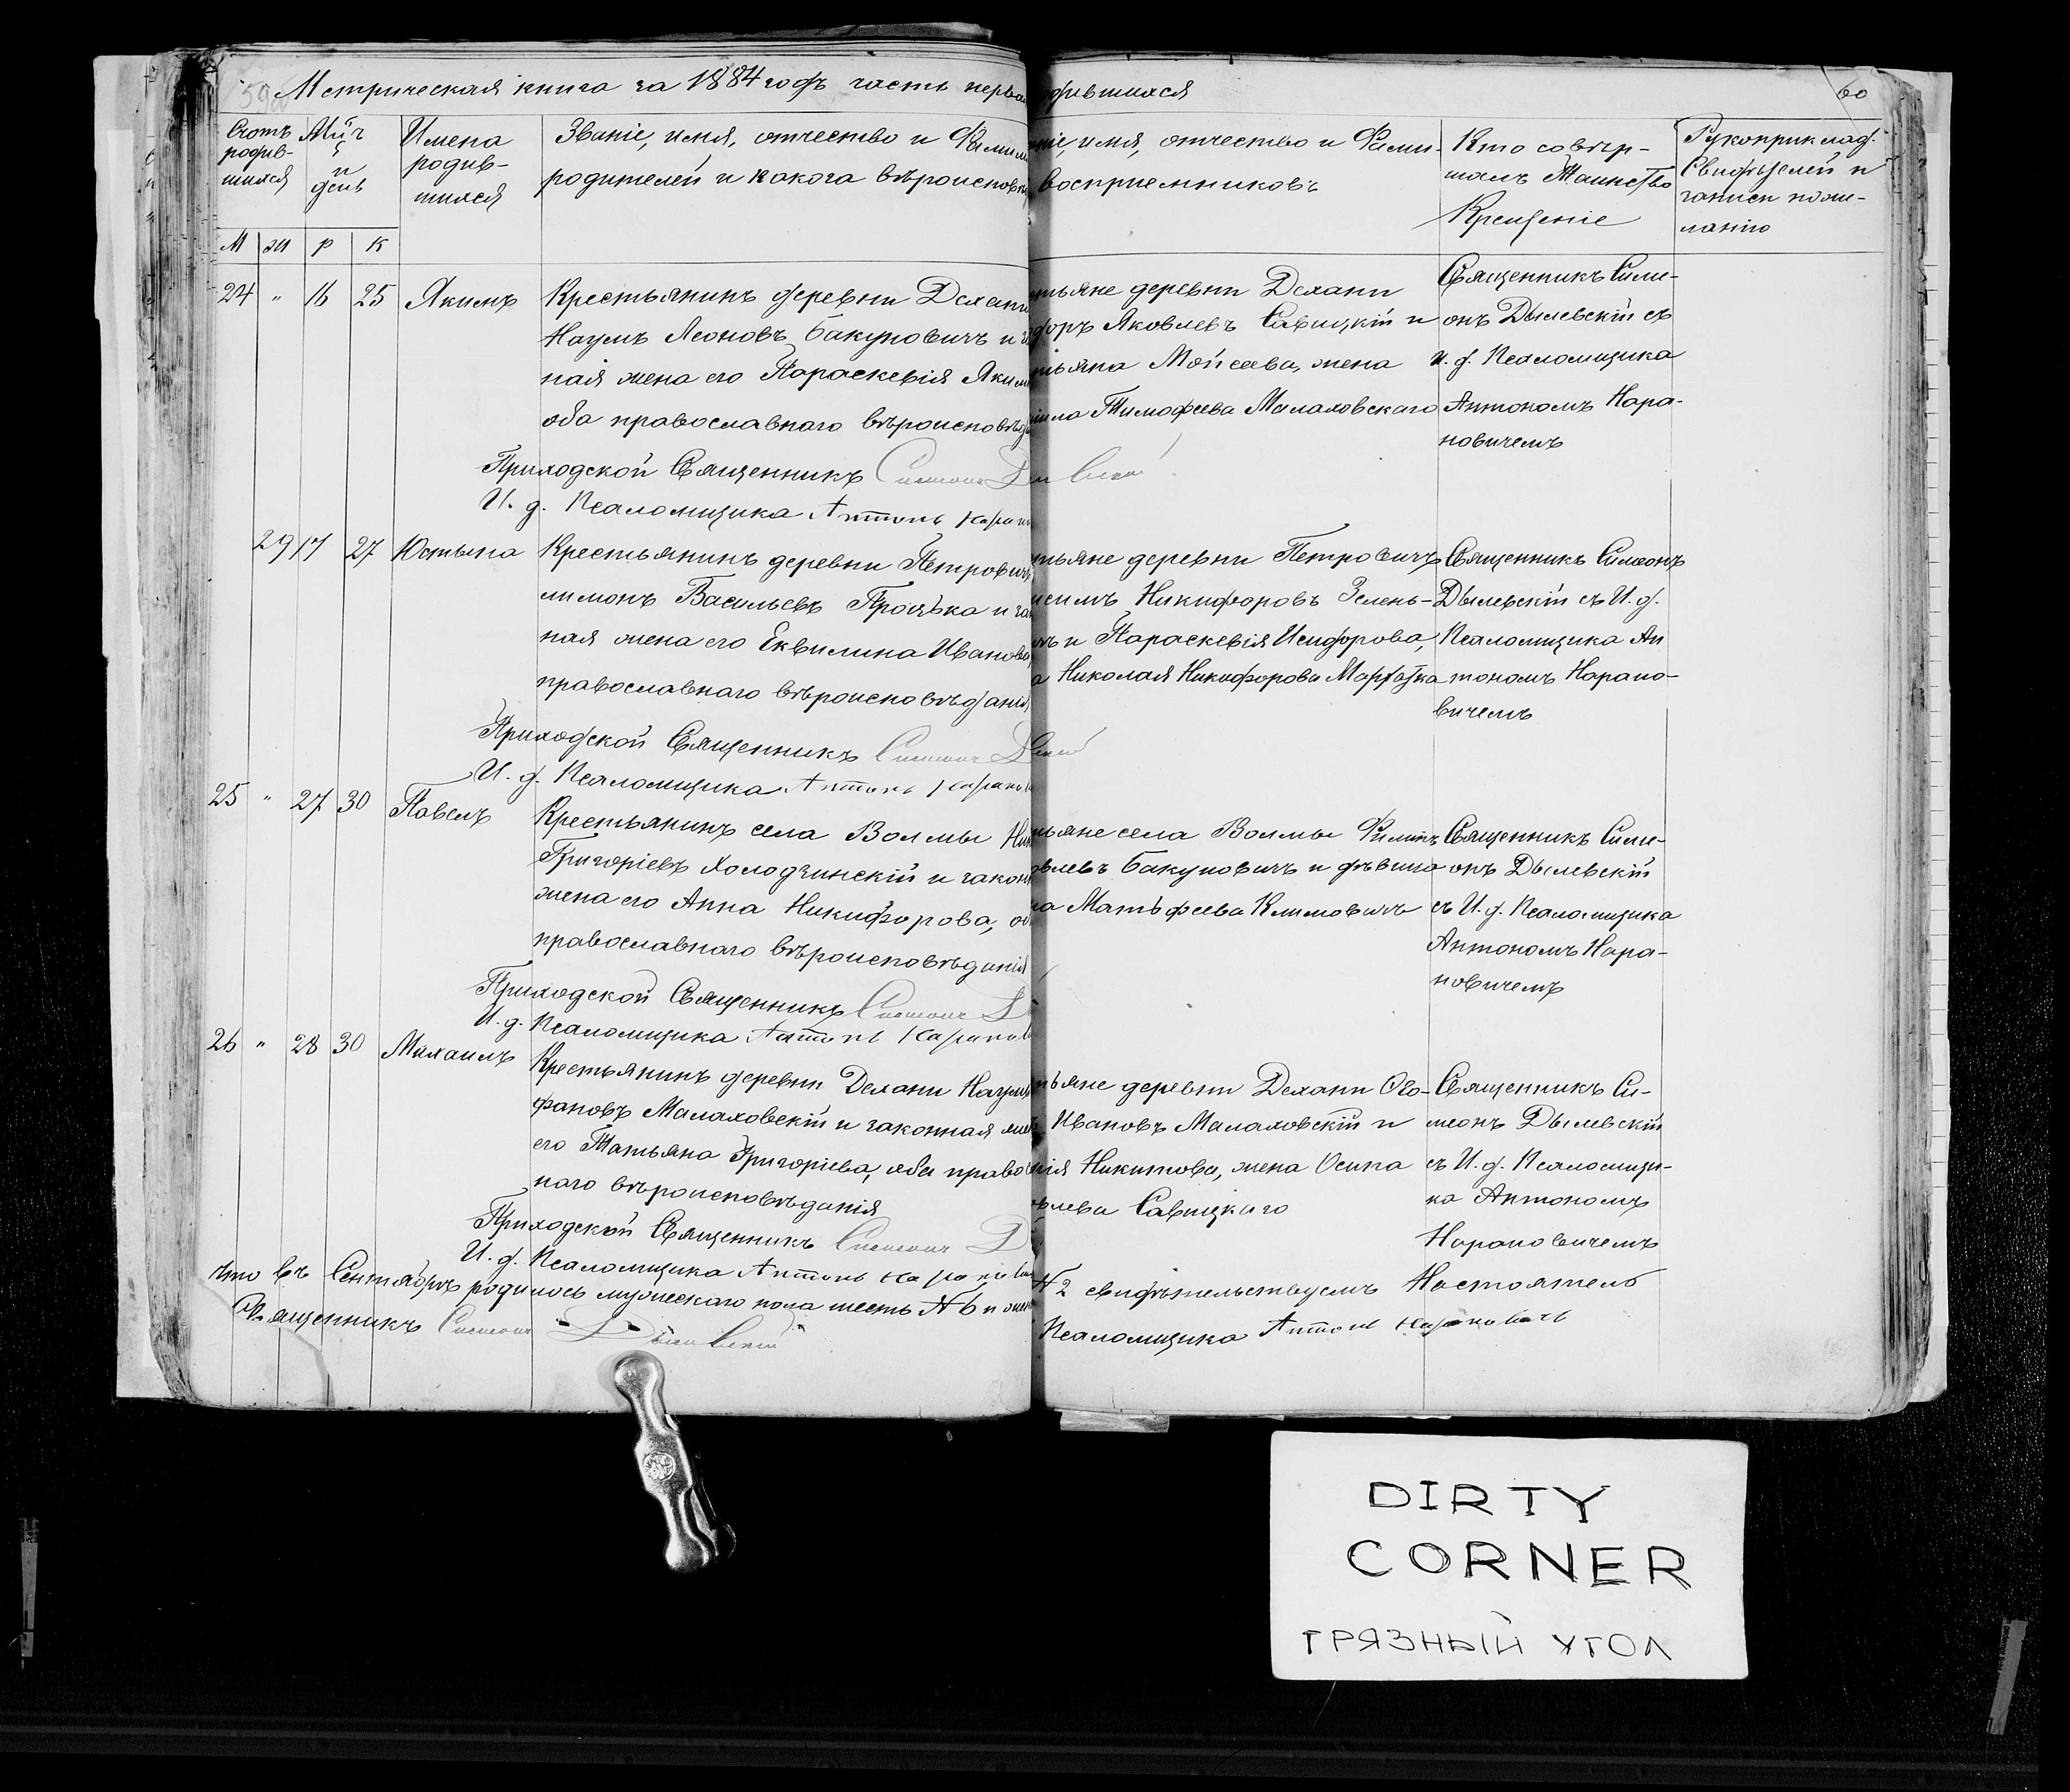 Метрическая книга за 1884 годъ часть первая
одившихся
60
Счотъ родив-шихся
Мѣц и день
Имена родив-шихся
Званіе, имя, отчество и Фамил
родителей и какога вѣроисповѣ
ніе, имя, отчество и Фами-
восприемниковъ
Кто совѣр-
шалъ Таинство
Крещеніе
Рукоприклад.
Свидѣтелей и
записи по же-
ланію
М ж р к
24 " 16 25 Якимъ
Крестьянинъ деревни Дехани
Наумъ Леоновъ Бакуновичъ и за
ная жена его Параскевія Яким
оба православнаго вѣроисповѣд
тьяне деревни Дехани
форъ Яковлевъ Савицкій и
тьяна Мойсеева, жена
ила Тимофеева Малаховскаго
Священникъ Симе-
онъ Дылевскій съ
и. д. Псаломщика
Антономъ Нара-
новичемъ
Приходской Священникъ Симеонъ
И. д. Псаломщика Антонъ Наран
29 17 27 Юстына
Крестьянинъ деревни Петровичъ
лимонъ Васильевъ Процька и за
ная жена его Еквилина Иванова
православнаго вѣроисповѣданія
тьяне деревни Петровичъ
исимъ Никифоровъ Зелень-
и Параскевія Исидорова,
а Николая Никифорова
Священникъ Симеонъ
Дылевскій съ И. д.
Псаломщика Ан
тономъ Нарано-
вичемъ
Приходской Священникъ Симеонъ
И. д. Псаломщика Антонъ Наранов
25 " 27 30 Павелъ
Крестьянинъ села Волмы Ник
Григоріевъ Холодзинскій и закон
жена его Анна Никифорова, об
православнаго вѣроисповѣданія
ьяне села Волмы Филипъ
влевъ Бакуновичъ и дѣвица
на Матьфеева Климовичъ
Священникъ Симе-
онъ Дылевскій
съ И. д. Псаломщика
Антономъ Нара-
новичемъ
Приходской Священникъ Симеонъ
И. д. Псаломщика Антонъ Наранов
26 " 28 30 Михаилъ
Крестьянинъ деревни Дехани Наумъ
фановъ Малаховскій и законная же
его Татьяна Григоріева, оба право
наго вѣроисповѣданія
тьяне деревни Дехани
Ивановъ Малаховскій и
нія Никитова, жена Осипа
влева Савицкаго
Священникъ Си-
меонъ Дылевскій
съ И. д. Псаломщи-
ка Антономъ
Нарановичемъ
Приходской Священникъ Симеонъ
И. д. Псаломщика Антонъ Наранови
Что въ Сентябрѣ родилось мужескаго пола шесть № 6 и жен
№ 2 свидѣтельствуемъ Настоятель
Священникъ Симеонъ Дылевскій
Псаломщика Антонъ Нарановичъ
DIRTY
CORNER
ГРЯЗНЫЙ УГОЛ